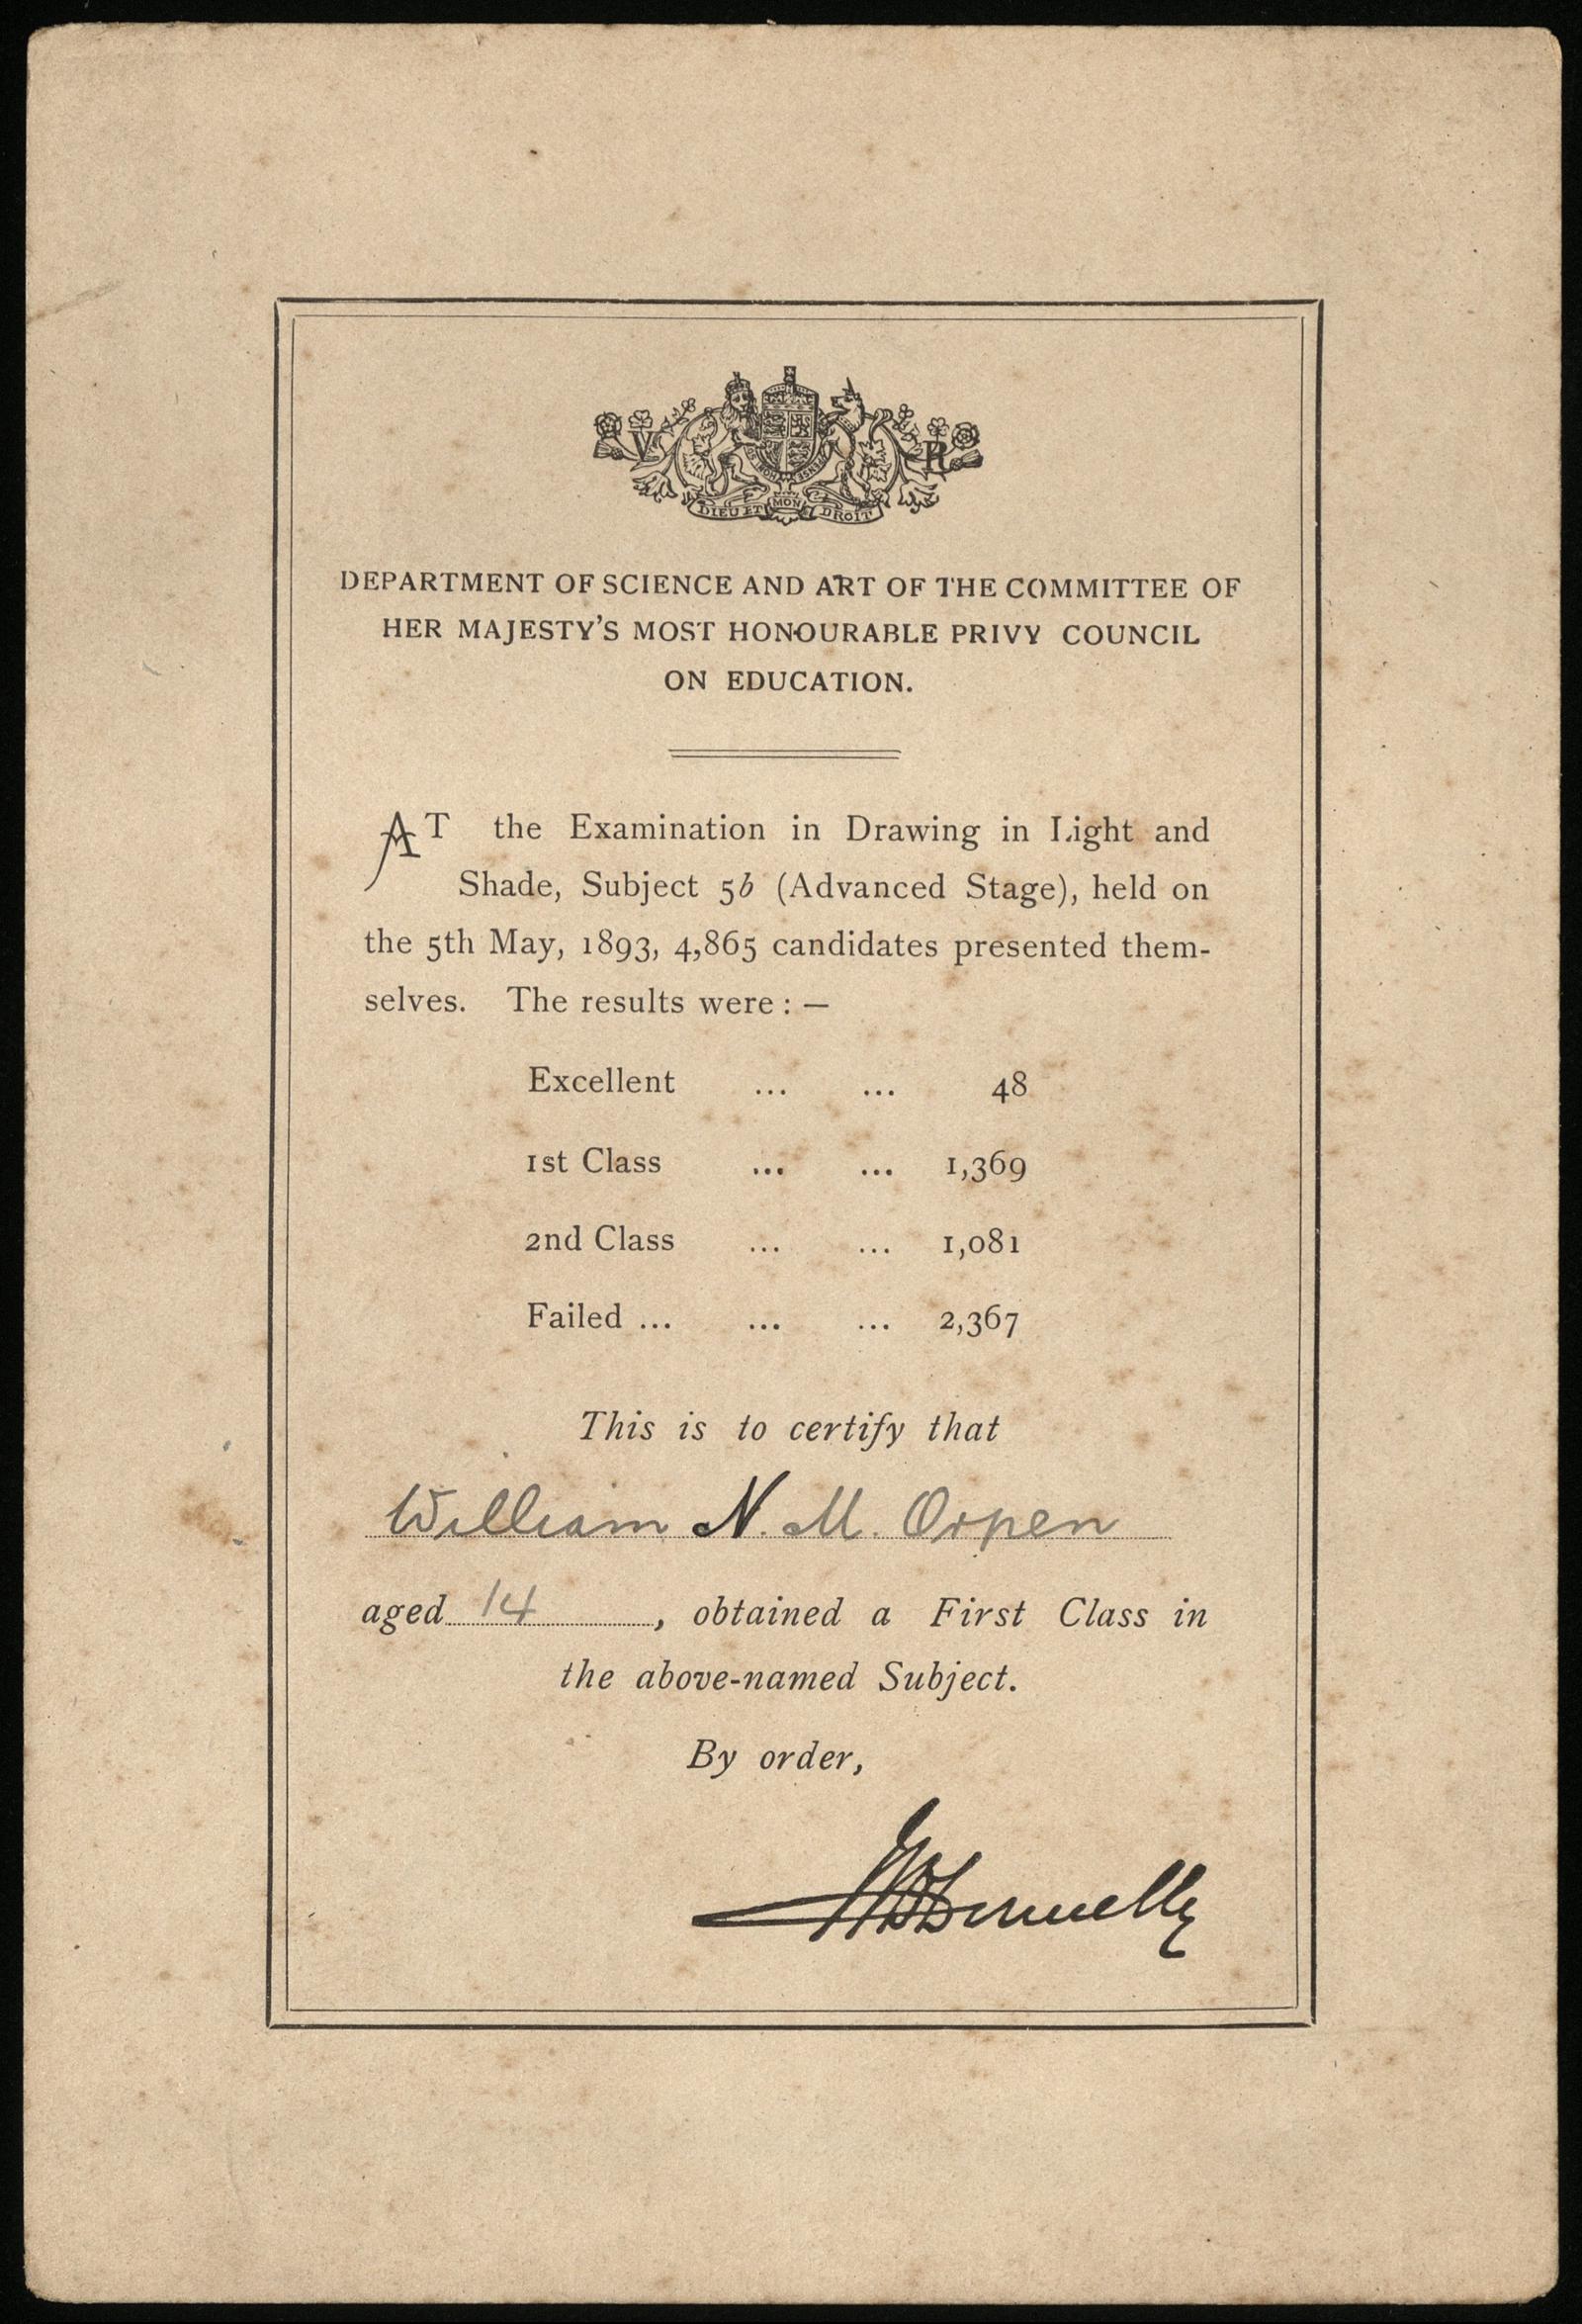 V R
DIEU ET MON DROIT
DEPARTMENT OF SCIENCE AND ART OF THE COMMITTEE OF
HER MAJESTY'S MOST HONOURABLE PRIVY COUNCIL
ON EDUCATION.
AT the Examination in Drawing in Light and
Shade, Subject 5b (Advanced Stage), held on
the 5th May, 1893, 4,865 candidates presented them-
selves. The results were : —
Excellent ... ... 48
1st Class ... ... 1,369
2nd Class ... ... 1,081
Failed ... ... ... 2,367
This is to certify that
William N. M. Orpen
aged 14, obtained a First Class in
the above-named Subject.
By order,
Donnelly